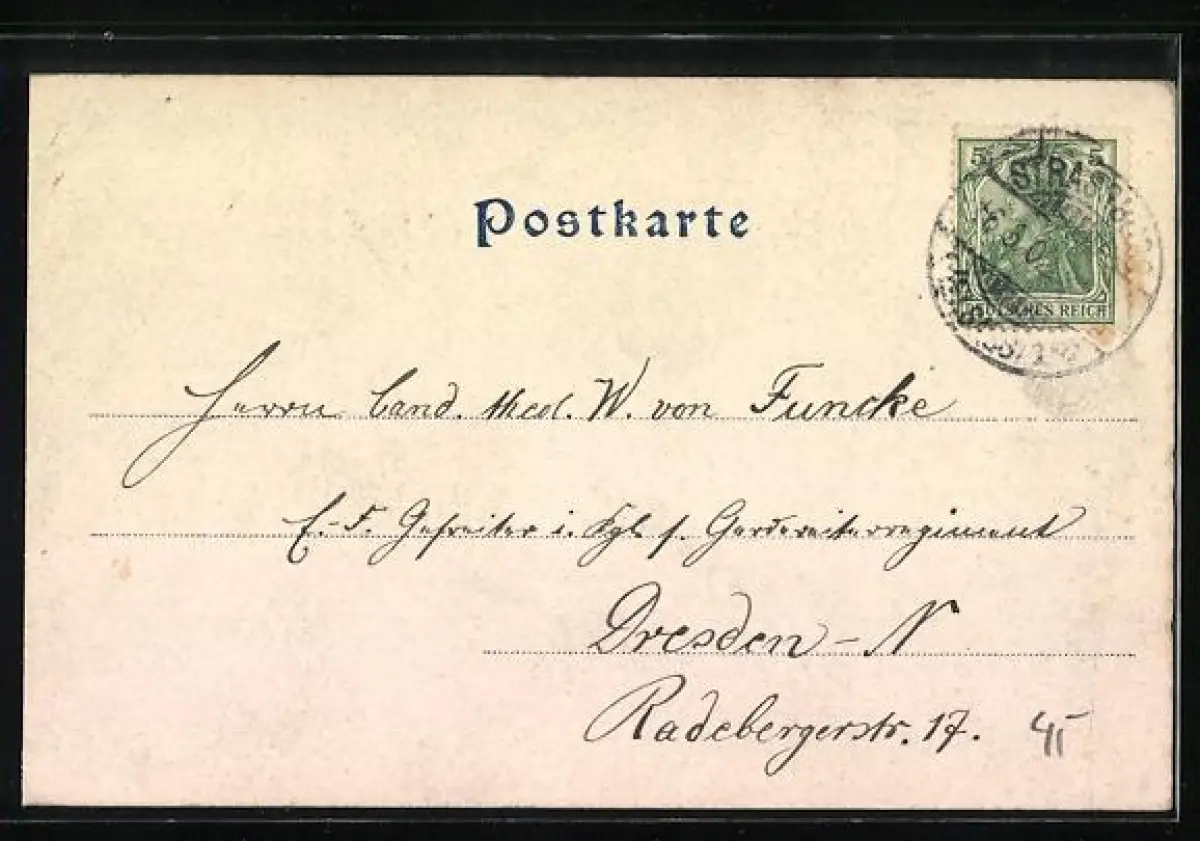 Postkarte
5 5
STRASSBURG
DEUTSCHES REICH
Herrn Cand. theol. W. von Funcke
E.-F. Gefreiter i. Kgl. s. Gardereiterregiment
Dresden-N
Radebergerstr. 17.
45